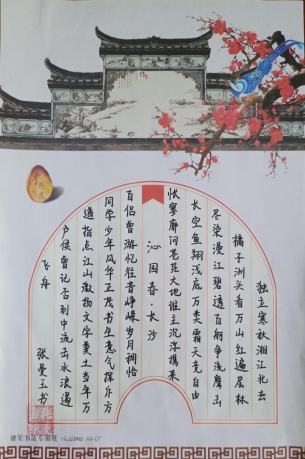 独立寒秋湘江北去
橘子洲头看万山红遍层林
尽染漫江碧透百舸争流鹰击
长空鱼翔浅底万类霜天竞自由
怅寥廓问苍茫大地谁主沉浮携来
沁园春·长沙
百侣曾游忆往昔峥嵘岁月稠恰
同学少年风华正茂书生意气挥斥方
遒指点江山激扬文字粪土当年万
户侯曾记否到中流击水浪遏
飞舟 张曼玉书
硬笔书法专用纸 A4-07